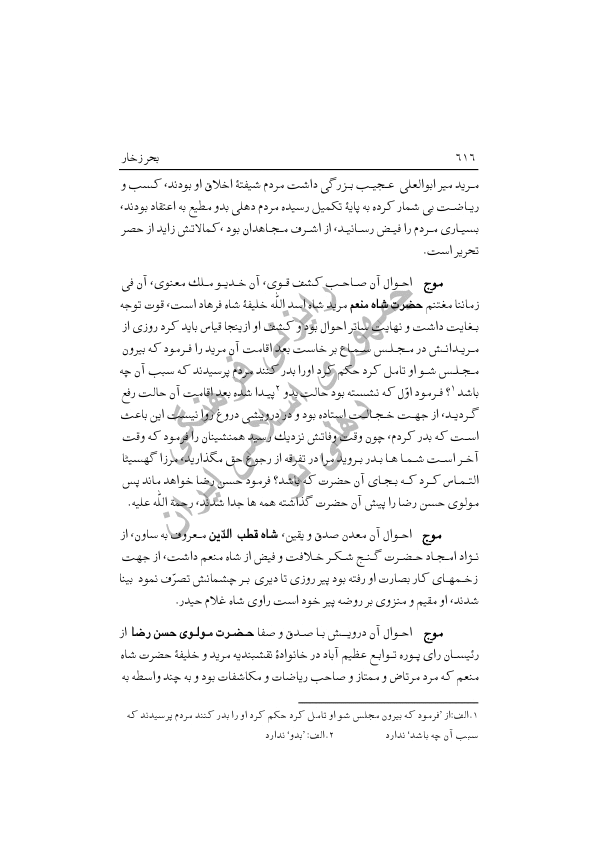 ۶۱۶ بحر زخار
مرید میر ابوالعلی عجیب بزرگی داشت مردم شیفتهٔ اخلاق او بودند، کسب و
ریاضت بی شمار کرده به پایهٔ تکمیل رسیده مردم دهلی بدو مطیع به اعتقاد بودند،
بسیاری مردم را فیض رسانید، از اشرف مجاهدان بود ،کمالاتش زاید از حصر
تحریر است.
موج احوال آن صاحب کشف قوی، آن خدیو ملك معنوی، آن فی
زماننا مغتنم حضرت شاه منعم مرید شاه اسد اللّٰه خلیفهٔ شاه فرهاد است، قوت توجه
بغایت داشت و نهایت ساتر احوال بود و کشف او ازینجا قیاس باید کرد روزی از
مریدانش در مجلس سماع بر خاست بعد اقامت آن مرید را فرمود که بیرون
مجلس شو او تامل کرد حکم کرد اورا بدر کنند مردم پرسیدند که سبب آن چه
باشد ۱؟ فرمود اوّل که نشسته بود حالت بدو ۲پیدا شده بعد اقامت آن حالت رفع
گردید، از جهت خجالت استاده بود و در درویشی دروغ روا نیست این باعث
است که بدر کردم، چون وقت وفاتش نزدیك رسید همنشینان را فرمود که وقت
آخر است شما ها بدر بروید مرا در تفرقه از رجوع حق مگذارید، مرزا گهسیٹا
التماس کرد که بجای آن حضرت که باشد؟ فرمود حسن رضا خواهد ماند پس
مولوی حسن رضا را پیش آن حضرت گذاشته همه ها جدا شدند، رحمة اللّٰه علیه.
موج احوال آن معدن صدق و یقین، شاه قطب الدّین معروف به ساون، از
نژاد امجاد حضرت گنج شکر خلافت و فیض از شاه منعم داشت، از جهت
زخمهای کار بصارت او رفته بود پیر روزی تا دیری بر چشمانش تصرّف نمود بینا
شدند، او مقیم و منزوی بر روضه پیر خود است راوی شاه غلام حیدر.
موج احوال آن درویش با صدق و صفا حضرت مولوی حسن رضا از
رئیسان رای پوره توابع عظیم آباد در خانوادهٔ نقشبندیه مرید و خلیفهٔ حضرت شاه
منعم که مرد مرتاض و ممتاز و صاحب ریاضات و مکاشفات بود و به چند واسطه به
۱.الف:از ’فرمود که بیرون مجلس شو او تامل کرد حکم کرد او را بدر کنند مردم پرسیدند که
سبب آن چه باشد‘ ندارد ۲.الف:’بدو‘ ندارد
رایزنی فرهنگی
جمهوری اسلامی ایران
دهلی نو